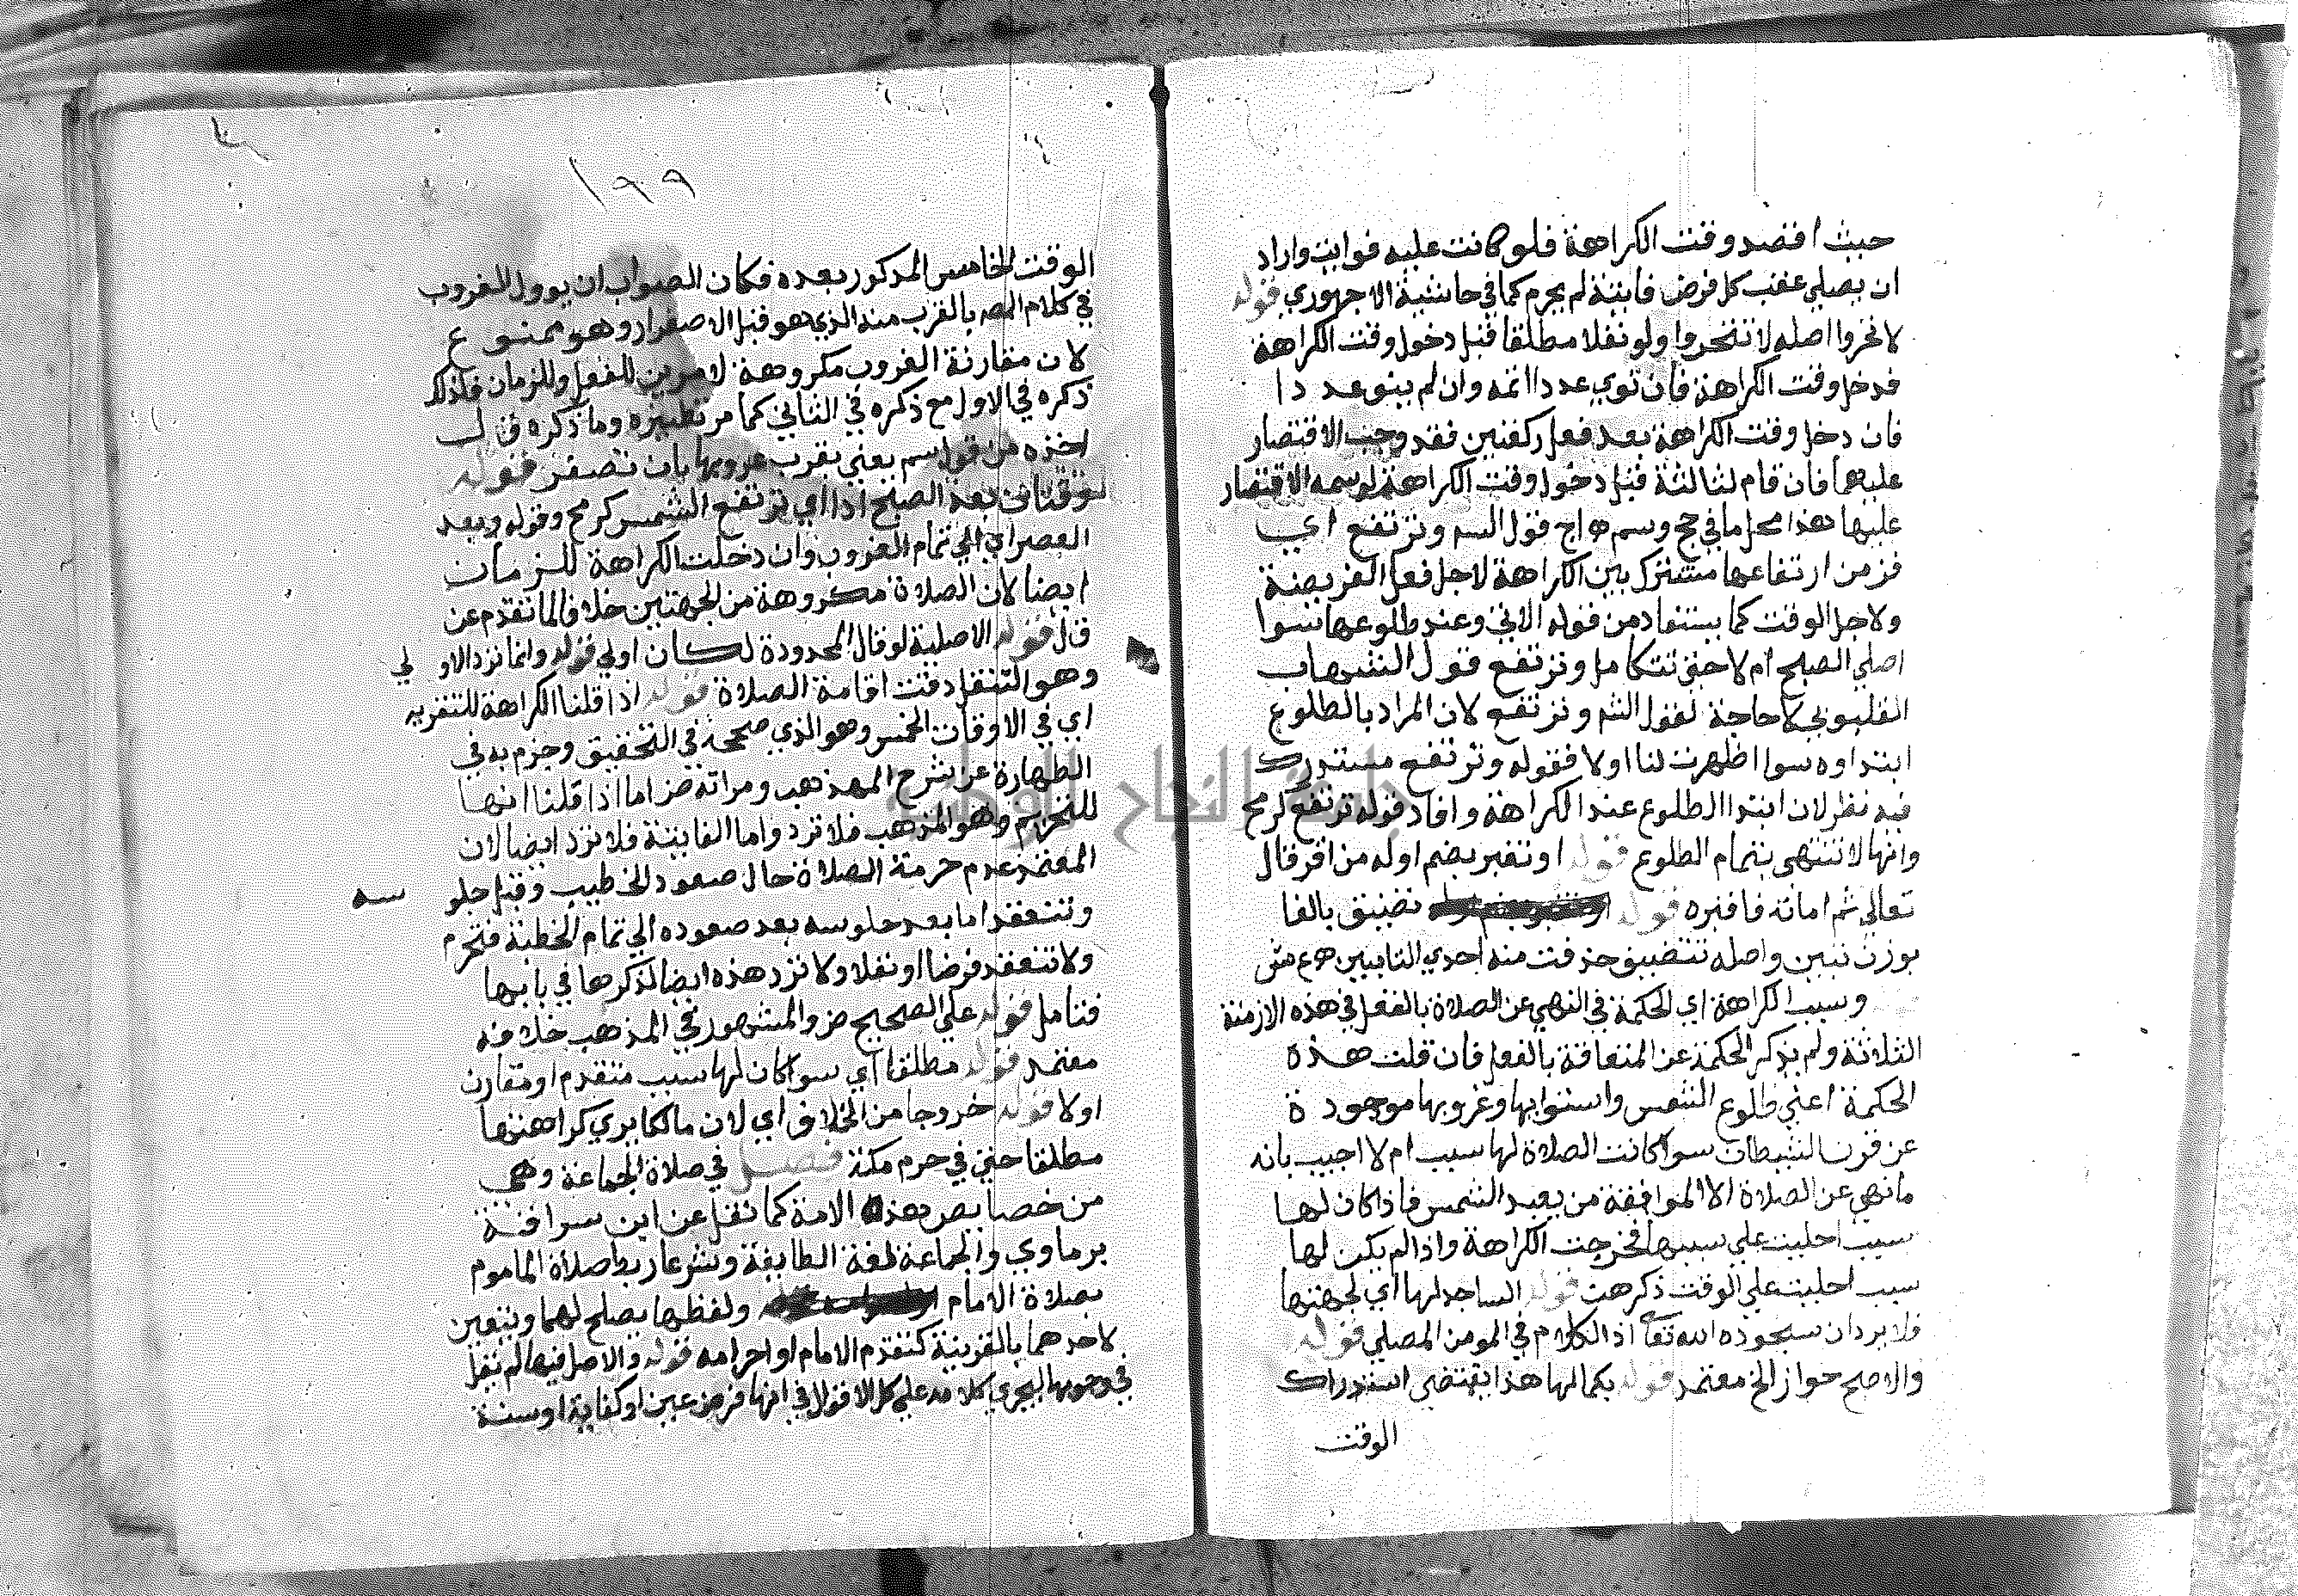 حيث اقتصد وقت الكراهة فلو كانت عليه فوايت واراد
ان يصلي عقب كل فرض فايتة لم يحرم كما في حاشية الاجهوري قوله
لا تحروا اصله لا تتحروا ولو نفلا مطلقا قبل دخول وقت الكراهة
فدخل وقت الكراهة فان نوي عددا اتمه وان لم ينو عددا
فان دخل وقت الكراهة بعد فعل ركعتين فقد وجب الاقتصار
عليهما فان قام لثالثة قبل دخول وقت الكراهة لوسمه الاقتصار
عليها هذا محل ما في حج وسم ه اج قول الشم وترتفع اي
فزمن ارتفاعها مشترك بين الكراهة لاجل فعل الفريضة
ولاجل الوقت كما يستفاد من قوله الاتي وعند طلوعها سوا
اصلي الصبح ام لا حتي تتكامل وترتفع قول الشهاب
القليوبي لا حاجة لقول الشم وترتفع لان المراد بالطلوع
ابتداوه سوا اظهرت لنا اولا فقوله وترتفع مستدرك
فيه نظر لان ابتدا الطلوع عند الكراهة وافاد قوله ترتفع كرمح
وانها لا تنتهي بتمام الطلوع قوله او نقبر بضم اوله من اقبر قال
تعالي ثم اماته فاقبره قوله تضيق بالفا
بوزن تبين واصله تتضيق حذفت منه احدي التايين ه ع ش
وسبب الكراهة اي الحكمة في النهي عن الصلاة بالفعل في هذه الازمنة
الثلاثة ولم يذكر الحكمة عن المتعلقة بالفعل فان قلت هذه
الحكمة اعني طلوع الشمس واستوايها وغروبها موجودة
عن قرن الشيطان سوا كانت الصلاة لها سبب ام لا اجيب بانه
ما نهي عن الصلاة الا لموافقة من يعبد الشمس فاذا كان لها
سبب احليت علي سببها فخرجت الكراهة واذا لم يكن لها
سبب احليت علي الوقت ذكرهت قوله الساجد لها اي لجهتها
فلا يرد ان سجوده الله تعا اذ الكلام في المومن المصلي قوله
والاصح جواز الخ معتمد قوله بكمالها هذا يقتضي استدراك
الوقت
١٩٩
الوقت الخامس المذكور بعده فكان الصواب ان يوول الغروب
في كلام المصه بالقرب منه الذي هو قبل الاصفرار وهو ممنوع
لان مقارنة الغروب مكروهة لامرين للفعل وللزمان فلذلك
ذكره في الاول مح ذكره في الثاني كما مر نظيره وما ذكره ق ل
اخذه من قول سم يعني بقرب غروبها بان تصفر قوله
وقتان بعد الصبح اذا اي ترتفع الشمس كرمح وقوله وبعد
العصر اي الي تمام الغروب وان دخلت الكراهة للزمان
ايضا لان الصلاة مكروهة من الجهتين خلافا لما تقدم عن
ق ل قوله الاصلية لو قال المحدودة لكان اولي قوله وانما تزد الاولي
وهو التنفل وقت اقامة الصلاة قوله اذا قلنا الكراهة للتنزيه
اي في الاوقات الخمس وهو الذي صححه في التحقيق وجزم به في
الطهارة عن شرح المهذب ومراته مز اما اذا قلنا انها
للتحريم وهو المذهب فلا ترد واما الفايتة فلا ترد ايضا لان
المعتمد عدم حرمة الصلاة حال صعود الخطيب وقبل جلوسه
وتنعقد اما بعد جلوسه بعد صعوده الي تمام الخطبة فتحرم
ولا تنعقد فرضا او نفلا ولا ترد هذه ايضا لذكرها في بابها
فتامل قوله علي الصحيح هو المشهور في المذهب خلافه
معتمد قوله مطلقا اي سوا كان لها سبب متقدم او مقارن
اولا قوله خروجا من الخلاف اي لان مالكا يري كراهتها
مطلقا حتي في حرم مكة فصل في صلاة الجماعة وهي
من خصايص هذه الامة كما نقل عن ابن سراقة
برماوي والجماعة لغة الطايفة وشرعا ربط صلاة الماموم
بصلاة الامام ولفظها يصلح لهما ويتعين
لاحدهما بالقرينة كتقدم الامام او احرامه قوله والاصل فيها لم نقل
في وجوبها ليجري كلامه علي كل الاقوال في انها فرض عين او كفاية او سنة